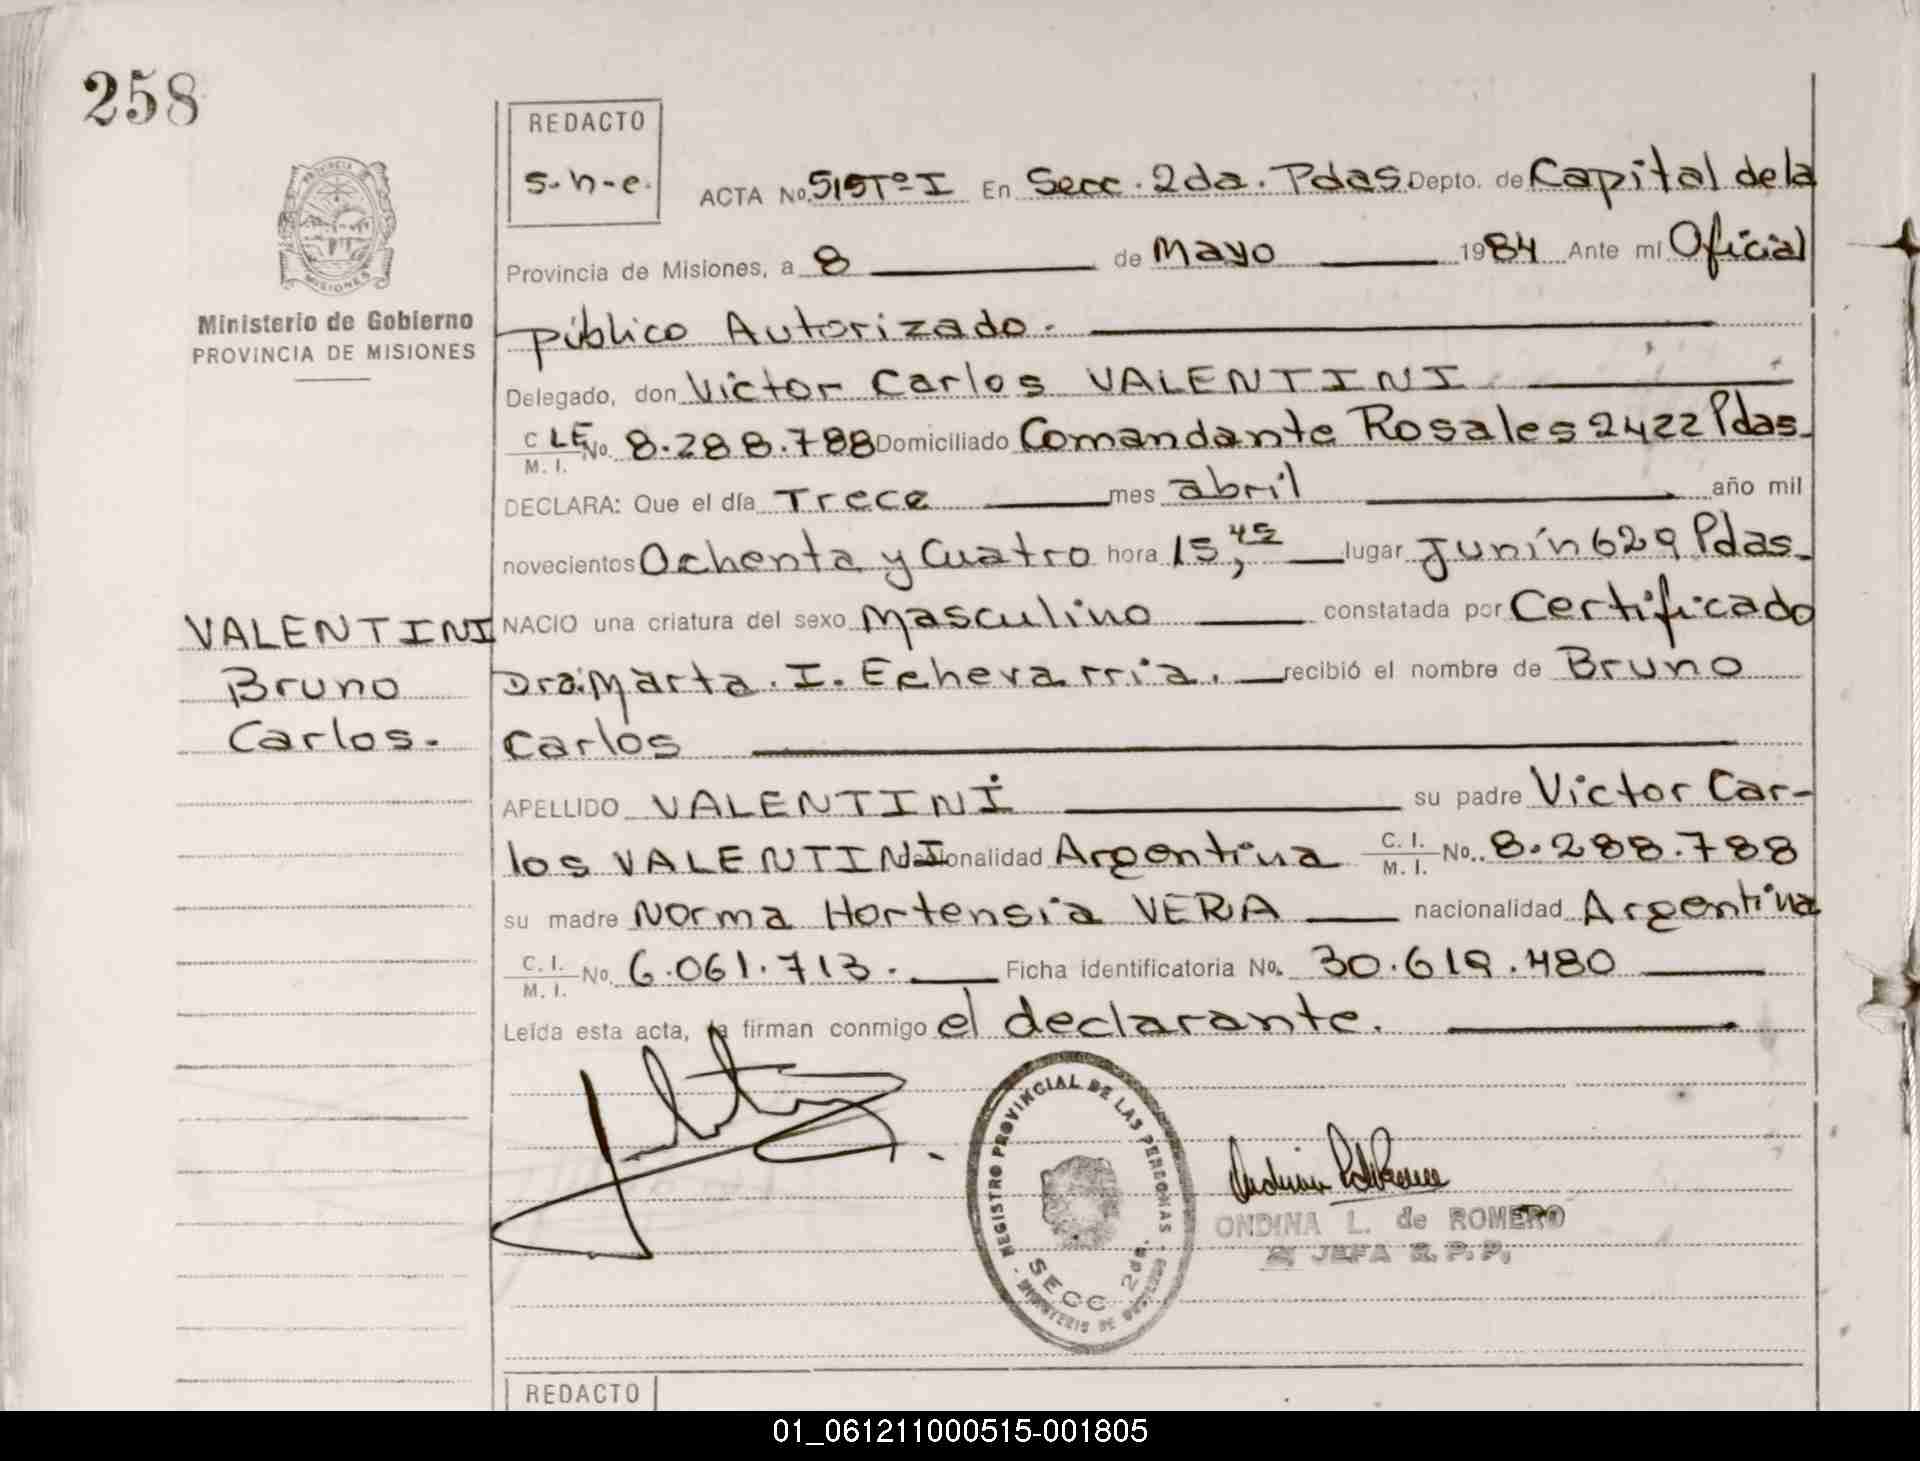 258
REDACTO
s-h-e.
ACTA No. 515 Tº-I En Secc. 2da. Pdas Depto. de Capital de la
Provincia de Misiones, a 8 de Mayo 1984 Ante mí Oficial
Público Autorizado.
Delegado, don Victor Carlos VALENTINI
C LE No. 8.288.788 Domiciliado Comandante Rosales 2422 Pdas.
M. I.
DECLARA: Que el día Trece mes abril año mil
novecientos Ochenta y Cuatro hora 15,45 lugar Junín 629 Pdas.
NACIO una criatura del sexo Masculino constatada por Certificado
Dra. Marta. I. Echevarria. recibió el nombre de Bruno
Carlos
APELLIDO VALENTINI su padre Victor Car-
los VALENTINI nacionalidad Argentina C. I. No. 8.288.788
M. I.
su madre Norma Hortensia VERA nacionalidad Argentina
C. I. No. 6.061.713. Ficha identificatoria No. 30.619.480
M. I.
Leída esta acta, la firman conmigo el declarante.
PROVINCIA DE
MISIONES
Ministerio de Gobierno
PROVINCIA DE MISIONES
VALENTINI
Bruno
Carlos.
REGISTRO PROVINCIAL DE LAS PERSONAS
SECC 2da.
MINISTERIO DE GOBIERNO
ONDINA L. de ROMERO
JEFA R.P.P.
REDACTO
01_061211000515-001805